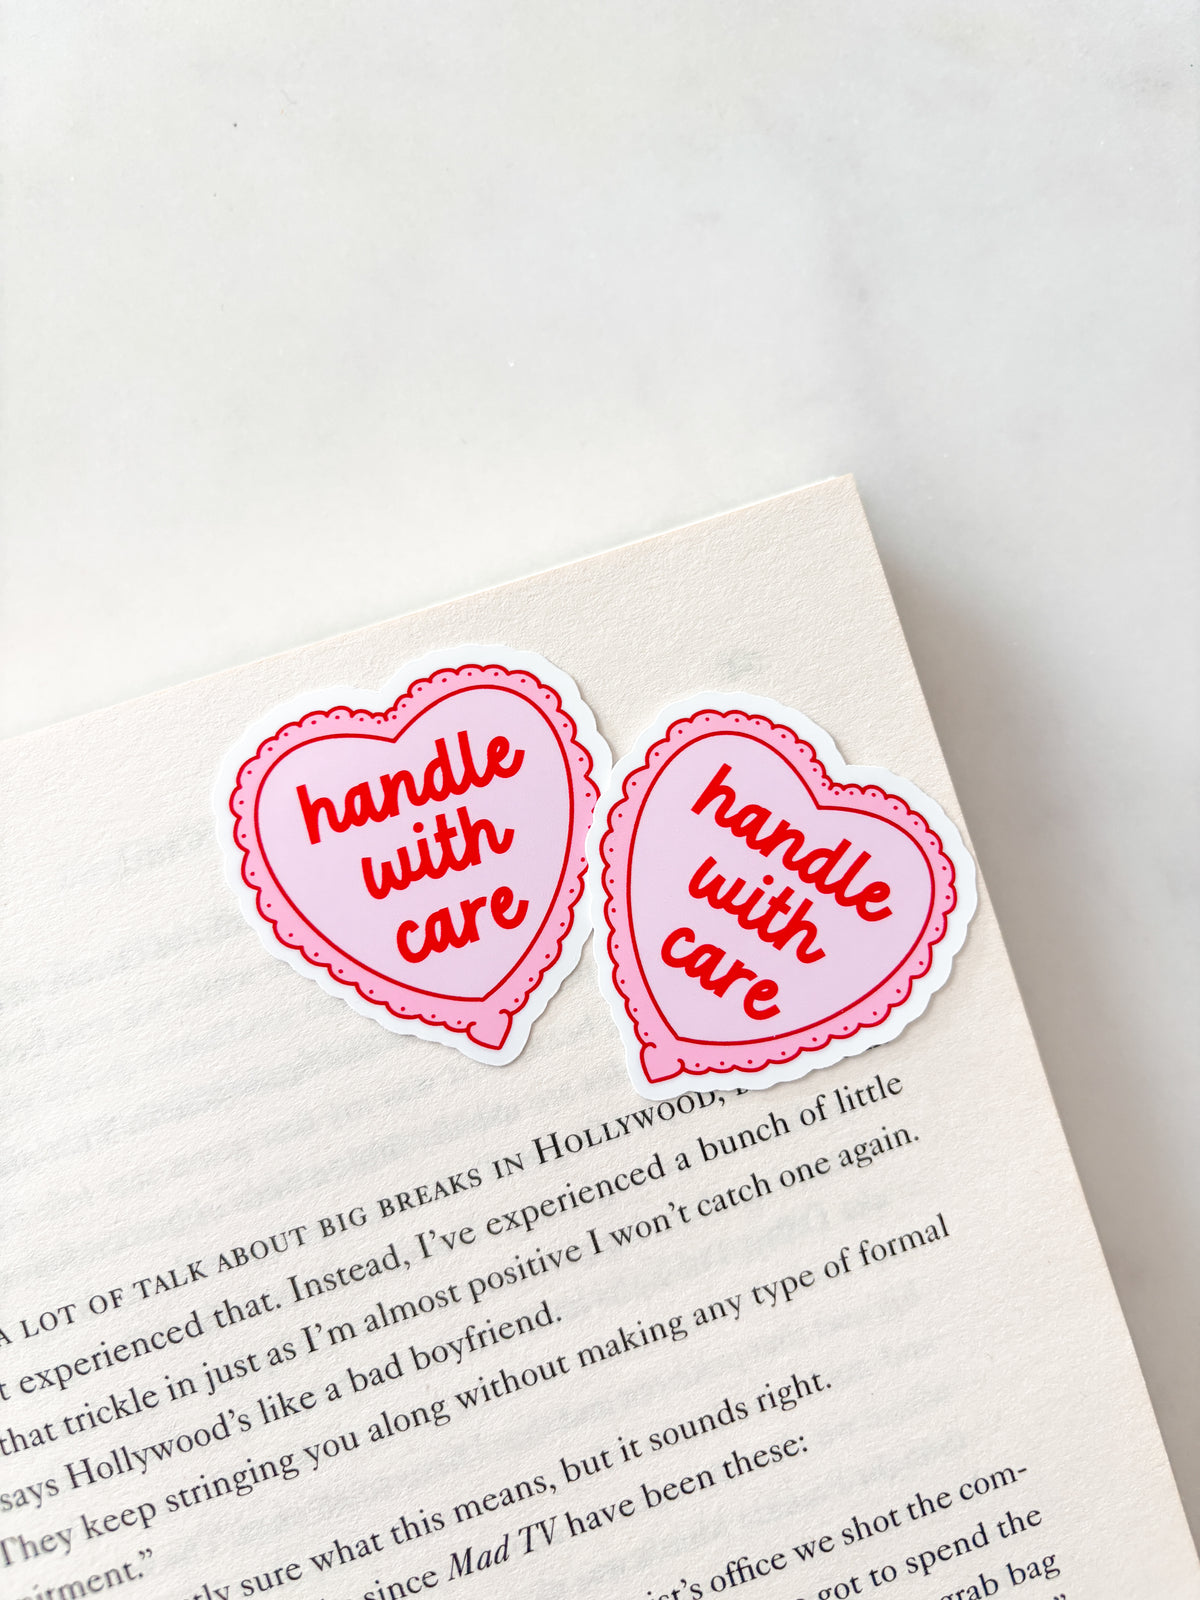 handle
with
care
handle
with
care
A LOT OF TALK ABOUT BIG BREAKS IN HOLLYWOOD,
experienced that. Instead, I've experienced a bunch of little
that trickle in just as I'm almost positive I won't catch one again.
says Hollywood's like a bad boyfriend.
They keep stringing you along without making any type of formal
sure what this means, but it sounds right.
since Mad TV have been these:
office we shot the com-
got to spend the
grab bag